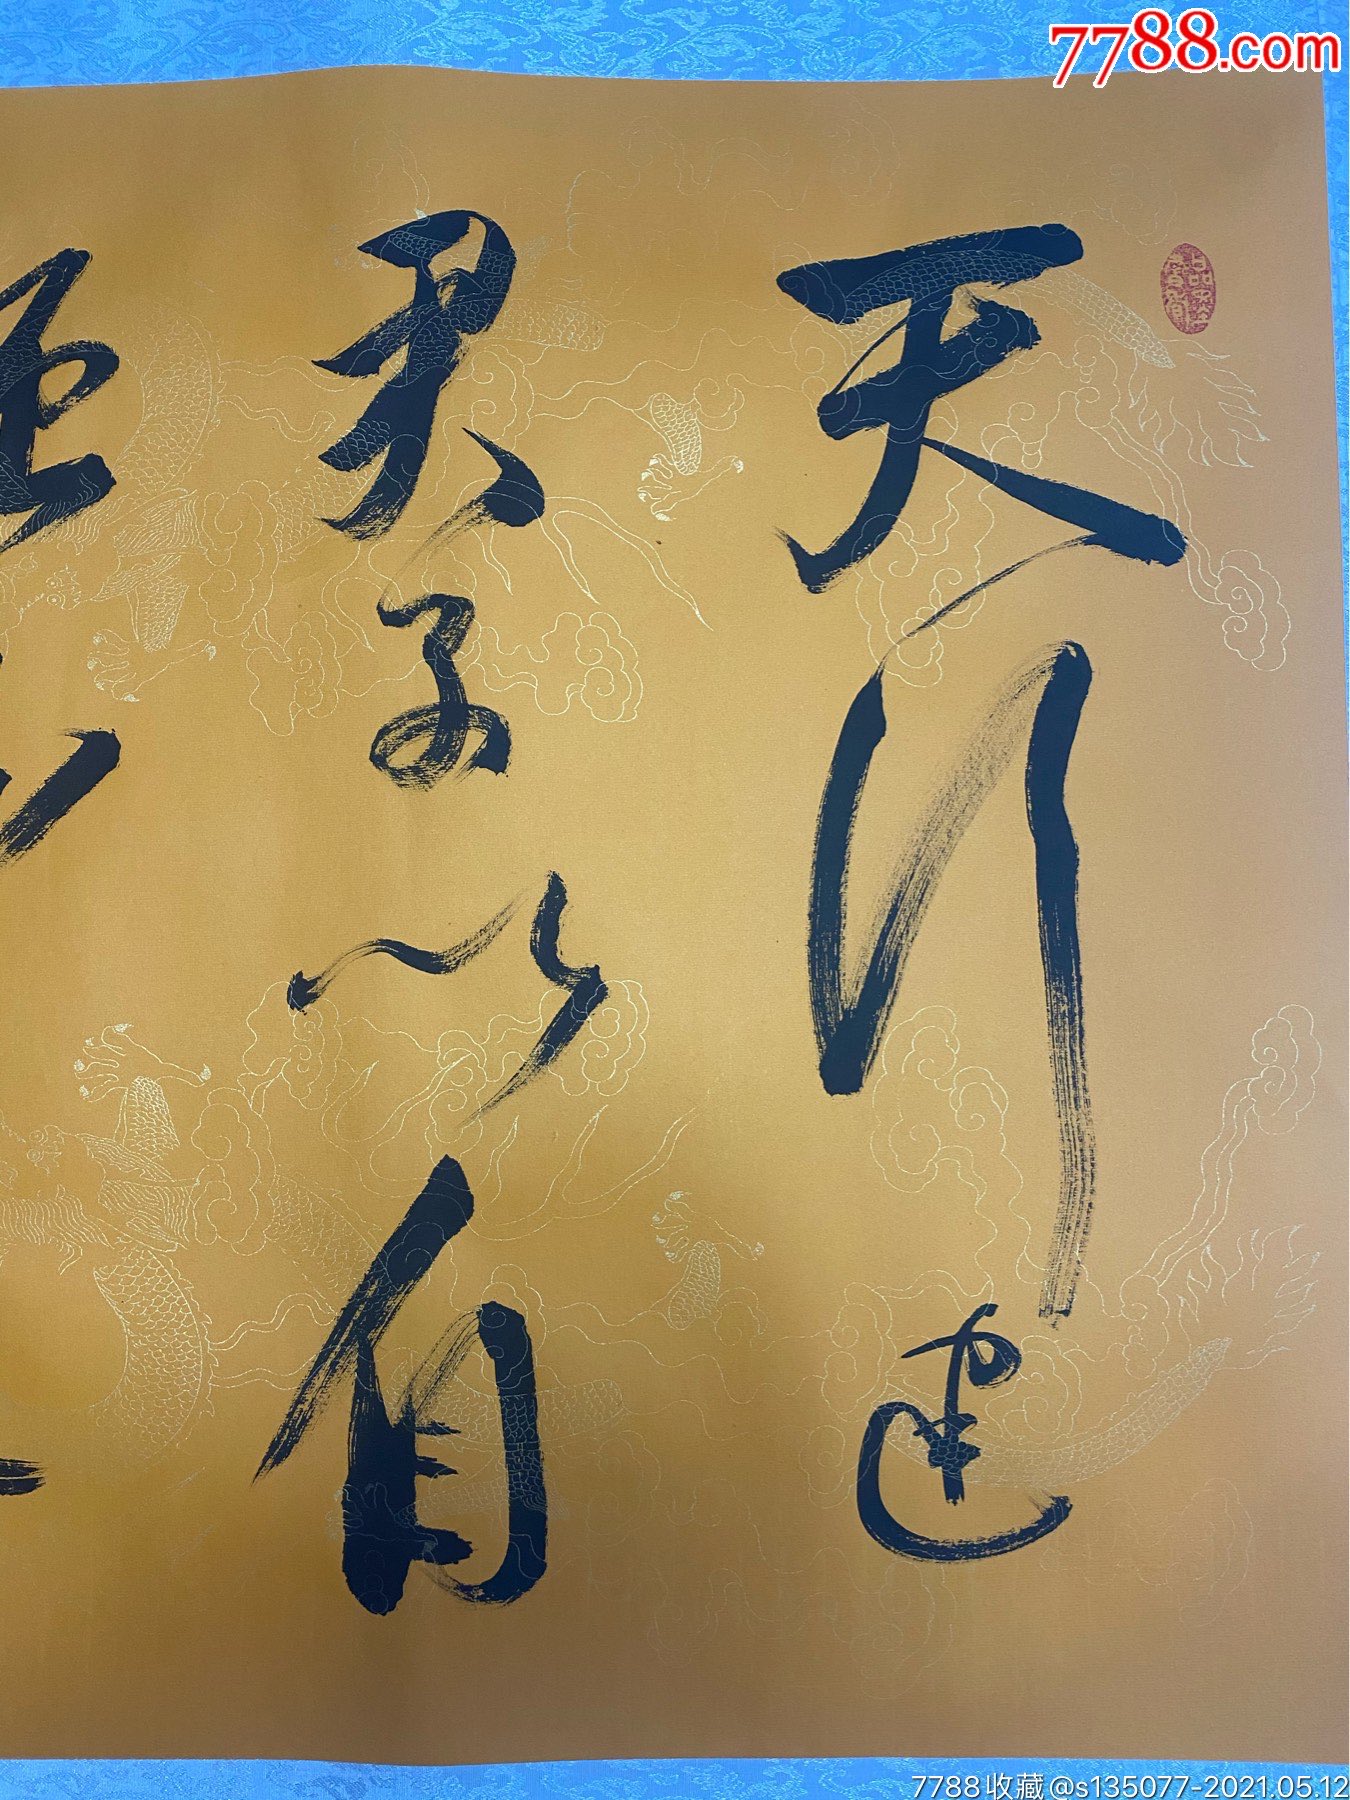 天行健
君子以自
强
7788.com
7788收藏@s135077-2021.05.12